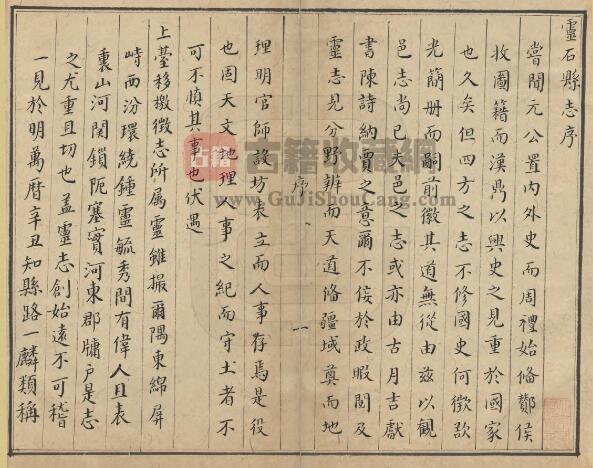 靈石縣志序
嘗聞元公置內外史而周禮始脩酇侯
收圖籍而漢鼎以興史之見重於國家
也久矣但四方之志不修國史何徵欤
光簡册而嗣前徽其道無從由兹以觀
邑志尚已夫邑之志或亦由古月吉獻
書陳詩納賈之意爾不佞於政暇閱及
靈志見分野辨而天道脩疆域奠而地
序
一
理明官師設坊表立而人事存焉是役
也固天文地理人事之紀而守土者不
可不慎其事也伏遇
上臺移檄徵志所属靈雖撮爾隅東綿屏
峙西汾環繞鍾靈毓秀間有偉人且表
裏山河関鎖阨塞實河東郡牖户是志
之尤重且切也盖靈志創始遠不可稽
一見於明萬曆辛丑知縣路一麟類稱
古籍
古籍收藏网
www.GuJiShouCang.com